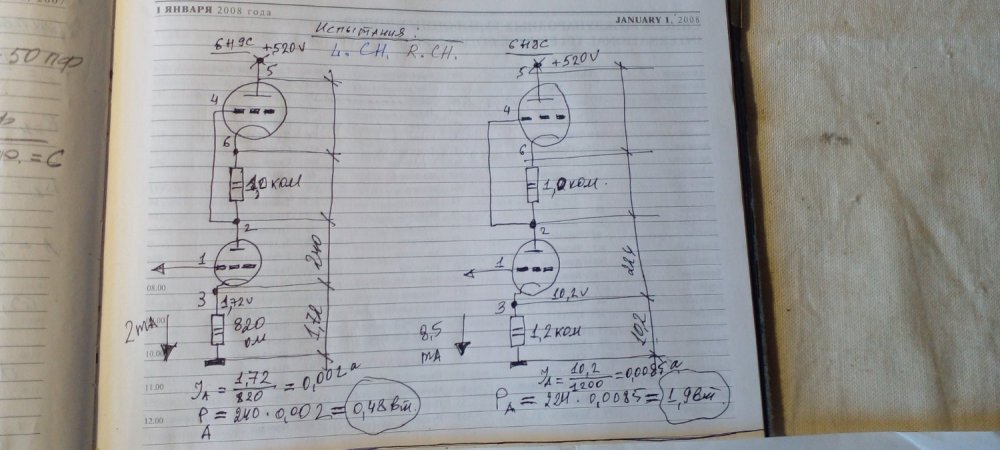 1 ЯНВАРЯ 2008 года
JANUARY 1, 2008
Испытания:
L. CH. R. CH.
50 пф
= C
6Н9С
+520V
5
4
6
1,0 ком
2
1
240
08.00
3
1,72V
2mA
820
ом
1,72
10.00
11.00
JA = 1,72 / 820 = 0,002 а
12.00
PA = 240 · 0,002 = 0,48 вт.
6Н8С
5
+520V
4
6
1,0 ком.
2
1
224
3
10,2V
8,5
mA
1,2 ком
10,2
JA = 10,2 / 1200 = 0,0085 а
PA = 224 · 0,0085 = 1,9 вт.